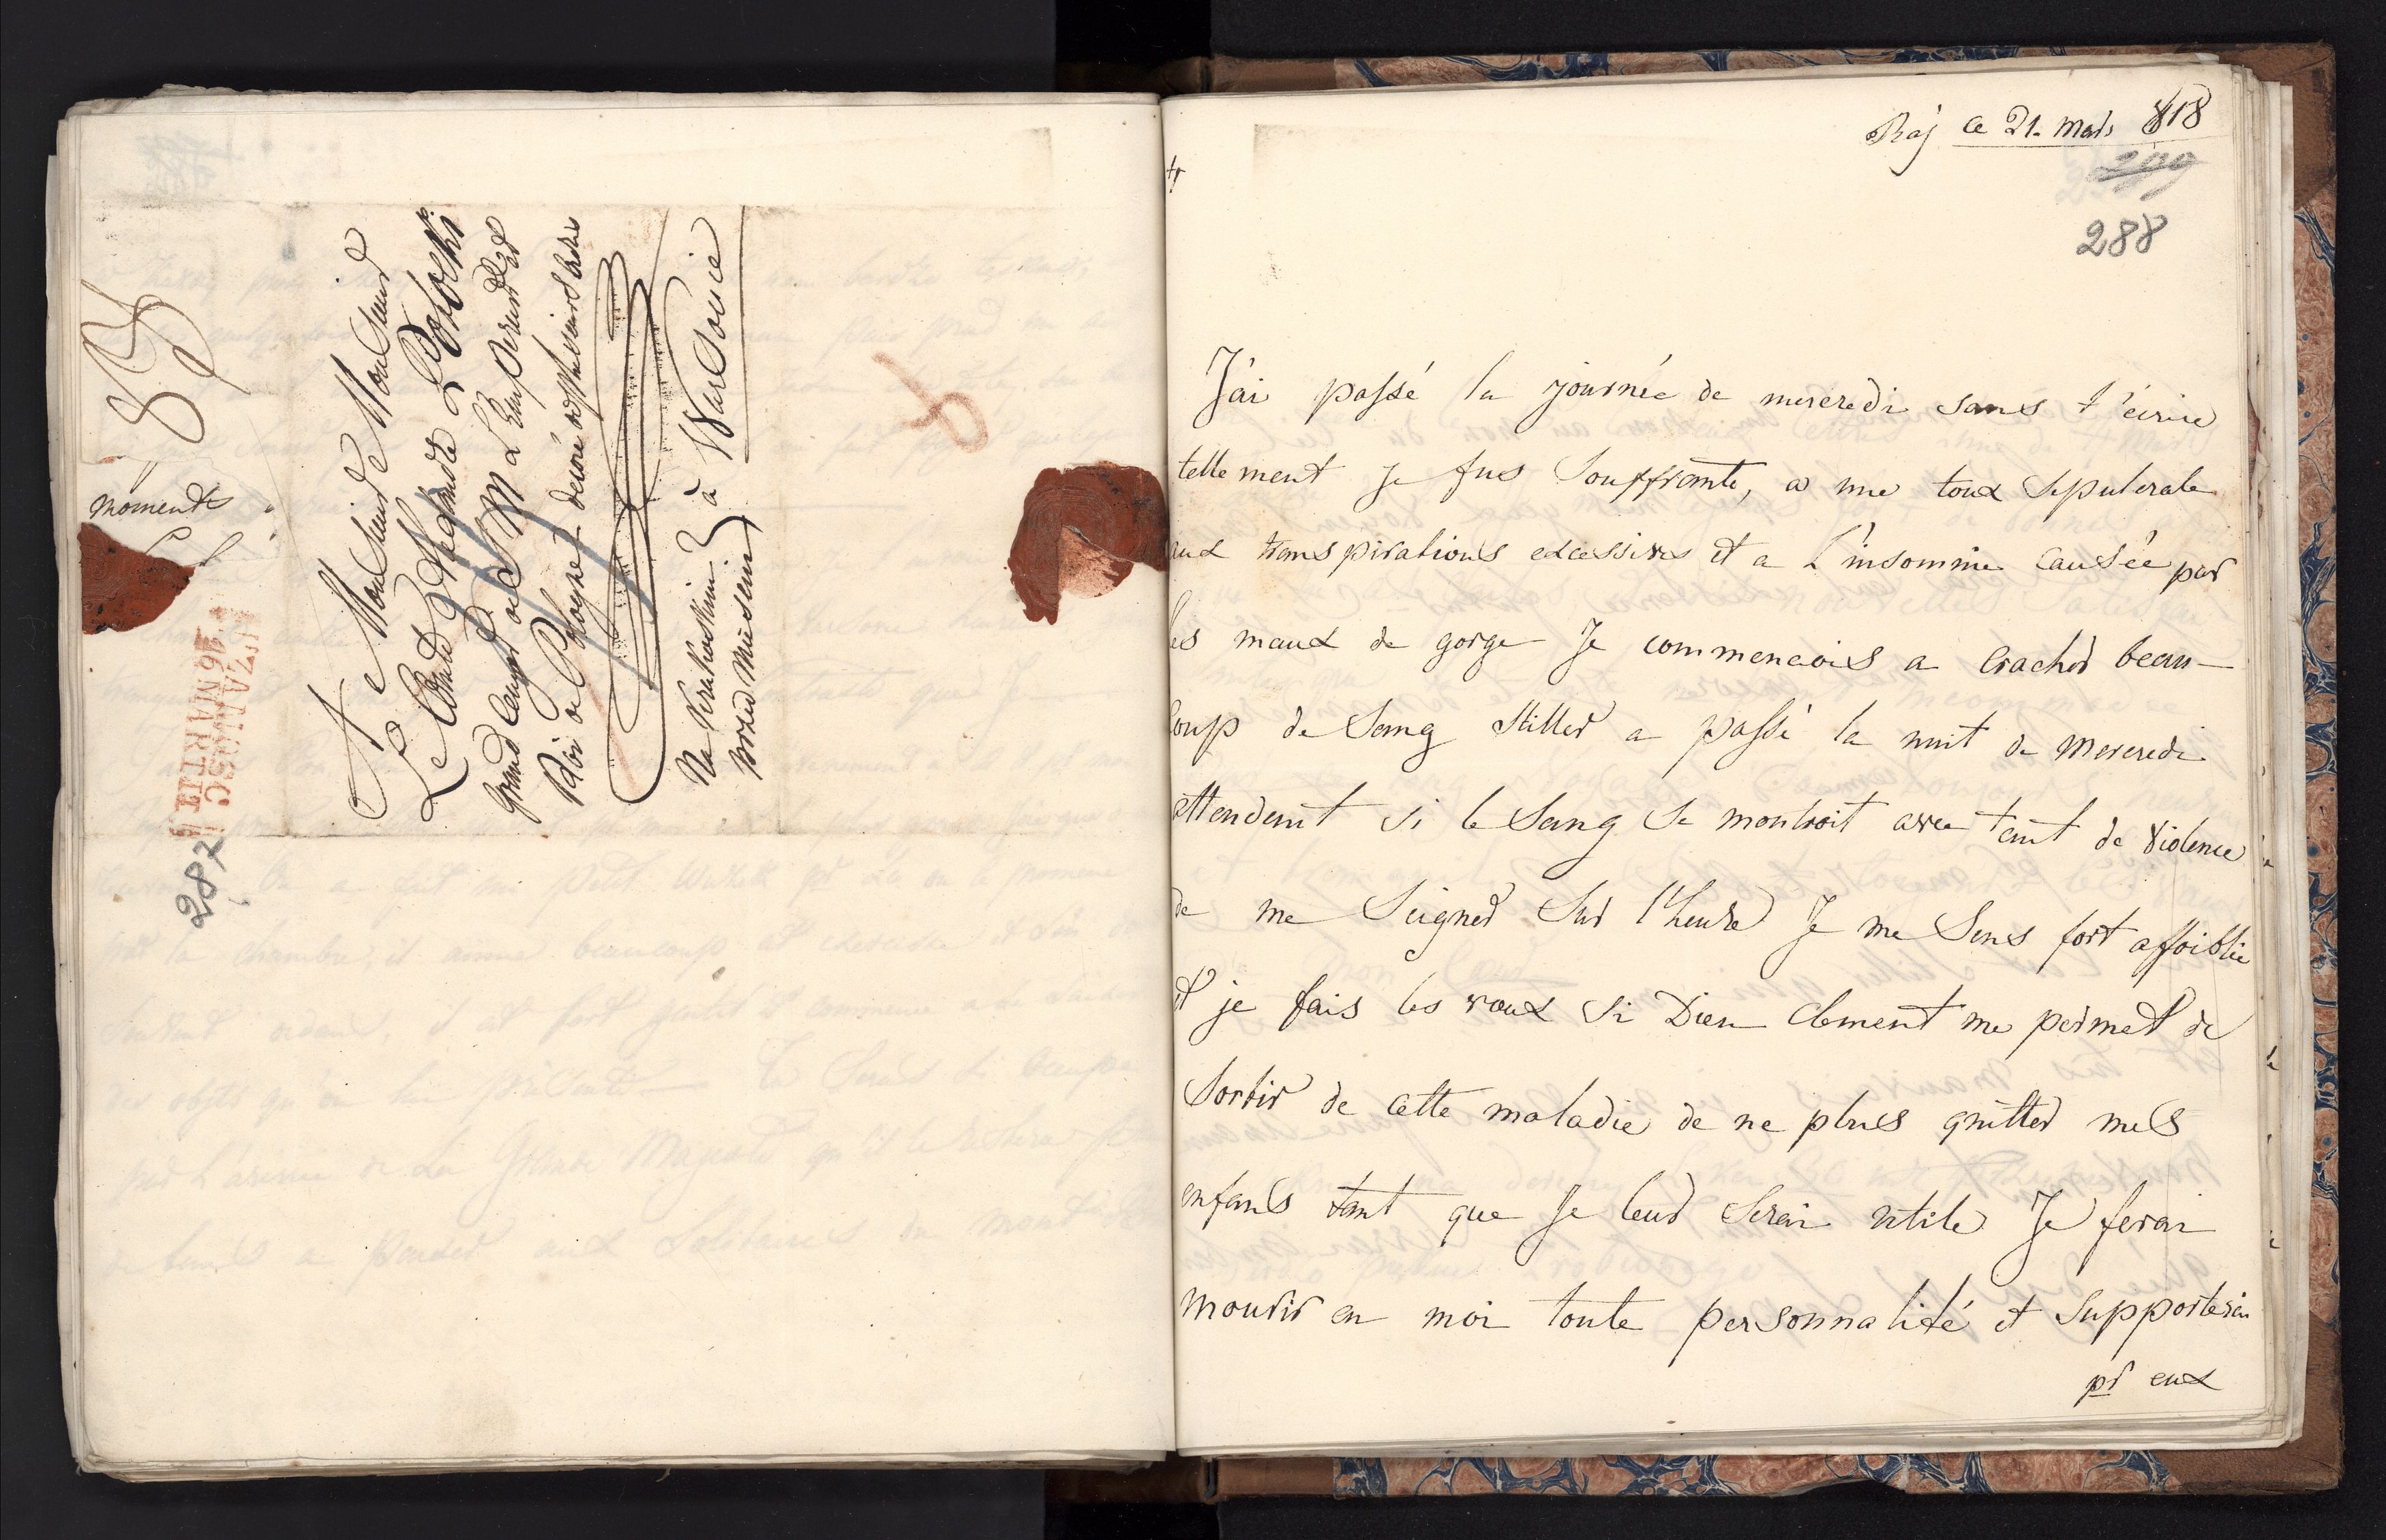 83
moments
A Monsieur de Monsieur
Le Comte Alexandre Potocki
Grand Ecuyer de S M L'Empereur et
Roi de Pologne decoré de plusieurs ordres
à Varsovie
Na Krakowskim
przed Muesem
ŁZA NOSC
26 MARTII
287
6
Raj ce 21. Mars 818
299
288
J'ai passé la journée de mercredi sans t'écrire
tellement je fus Souffrante, a une toux Sepulcrale
aux transpirations excessives et a L'insomnie Causée par
les maux de gorge Je commencois a Cracher beau-
coup de Sang Stiller a passé la nuit de Mercredi
attendent si le Sang Se montroit avec tant de violence
de me Seigner Sur l'heure Je me Sens fort affoiblie
et je fais les vœux Si Dieu Clement me permet de
Sortir de cette maladie de ne plus quitter mes
enfans tant que Je leur Serai utile Je ferai
mourir en moi toute personnalité et Supporterai
pr eux